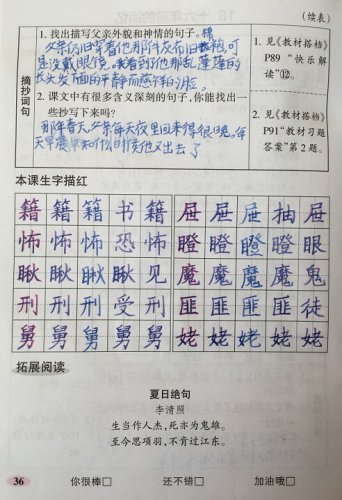 (续表)
摘抄词句
1. 找出描写父亲外貌和神情的句子。
父亲仍旧穿着他那件灰布旧棉袍,可
是没戴眼镜。我看到他那乱蓬蓬的
长头发下面的平静而慈祥的脸。
1. 见《教材搭档》
P89 “快乐解
读”⑫。
2. 课文中有很多含义深刻的句子,你能找出一
些抄写下来吗?
那年春天,父亲每天夜里回来得很晚。每
天早晨,不知什么时候他又出去了
2. 见《教材搭档》
P91“教材习题
答案”第 2 题。
本课生字描红
籍 籍 籍 书 籍 屉 屉 屉 抽 屉
怖 怖 怖 恐 怖 瞪 瞪 瞪 瞪 眼
瞅 瞅 瞅 瞅 见 魔 魔 魔 魔 鬼
刑 刑 刑 受 刑 匪 匪 匪 匪 徒
舅 舅 舅 舅 舅 姥 姥 姥 姥 姥
拓展阅读
夏日绝句
李清照
生当作人杰,死亦为鬼雄。
至今思项羽,不肯过江东。
36 你很棒□ 还不错□ 加油哦□